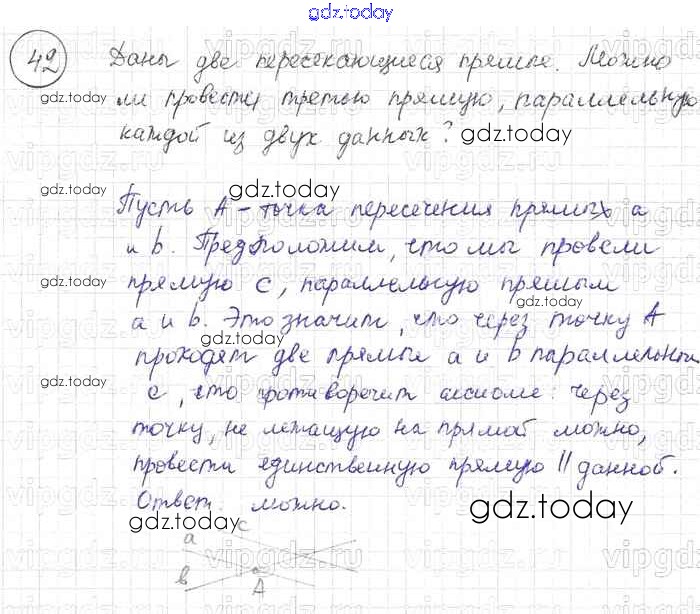 gdz.today
42
Даны две пересекающиеся прямые. Можно
ли провести третью прямую, параллельную
каждой из двух данных?
Пусть А – точка пересечения прямых a
и b. Предположим, что мы провели
прямую c, параллельную прямым
a и b. Это значит, что через точку А
проходят две прямые a и b параллельные
c, что противоречит аксиоме: через
точку, не лежащую на прямой можно,
провести единственную прямую || данной.
Ответ: можно.
a
c
b
A
gdz.today
gdz.today
gdz.today
gdz.today
gdz.today
gdz.today
gdz.today
gdz.today
gdz.today
gdz.today
gdz.today